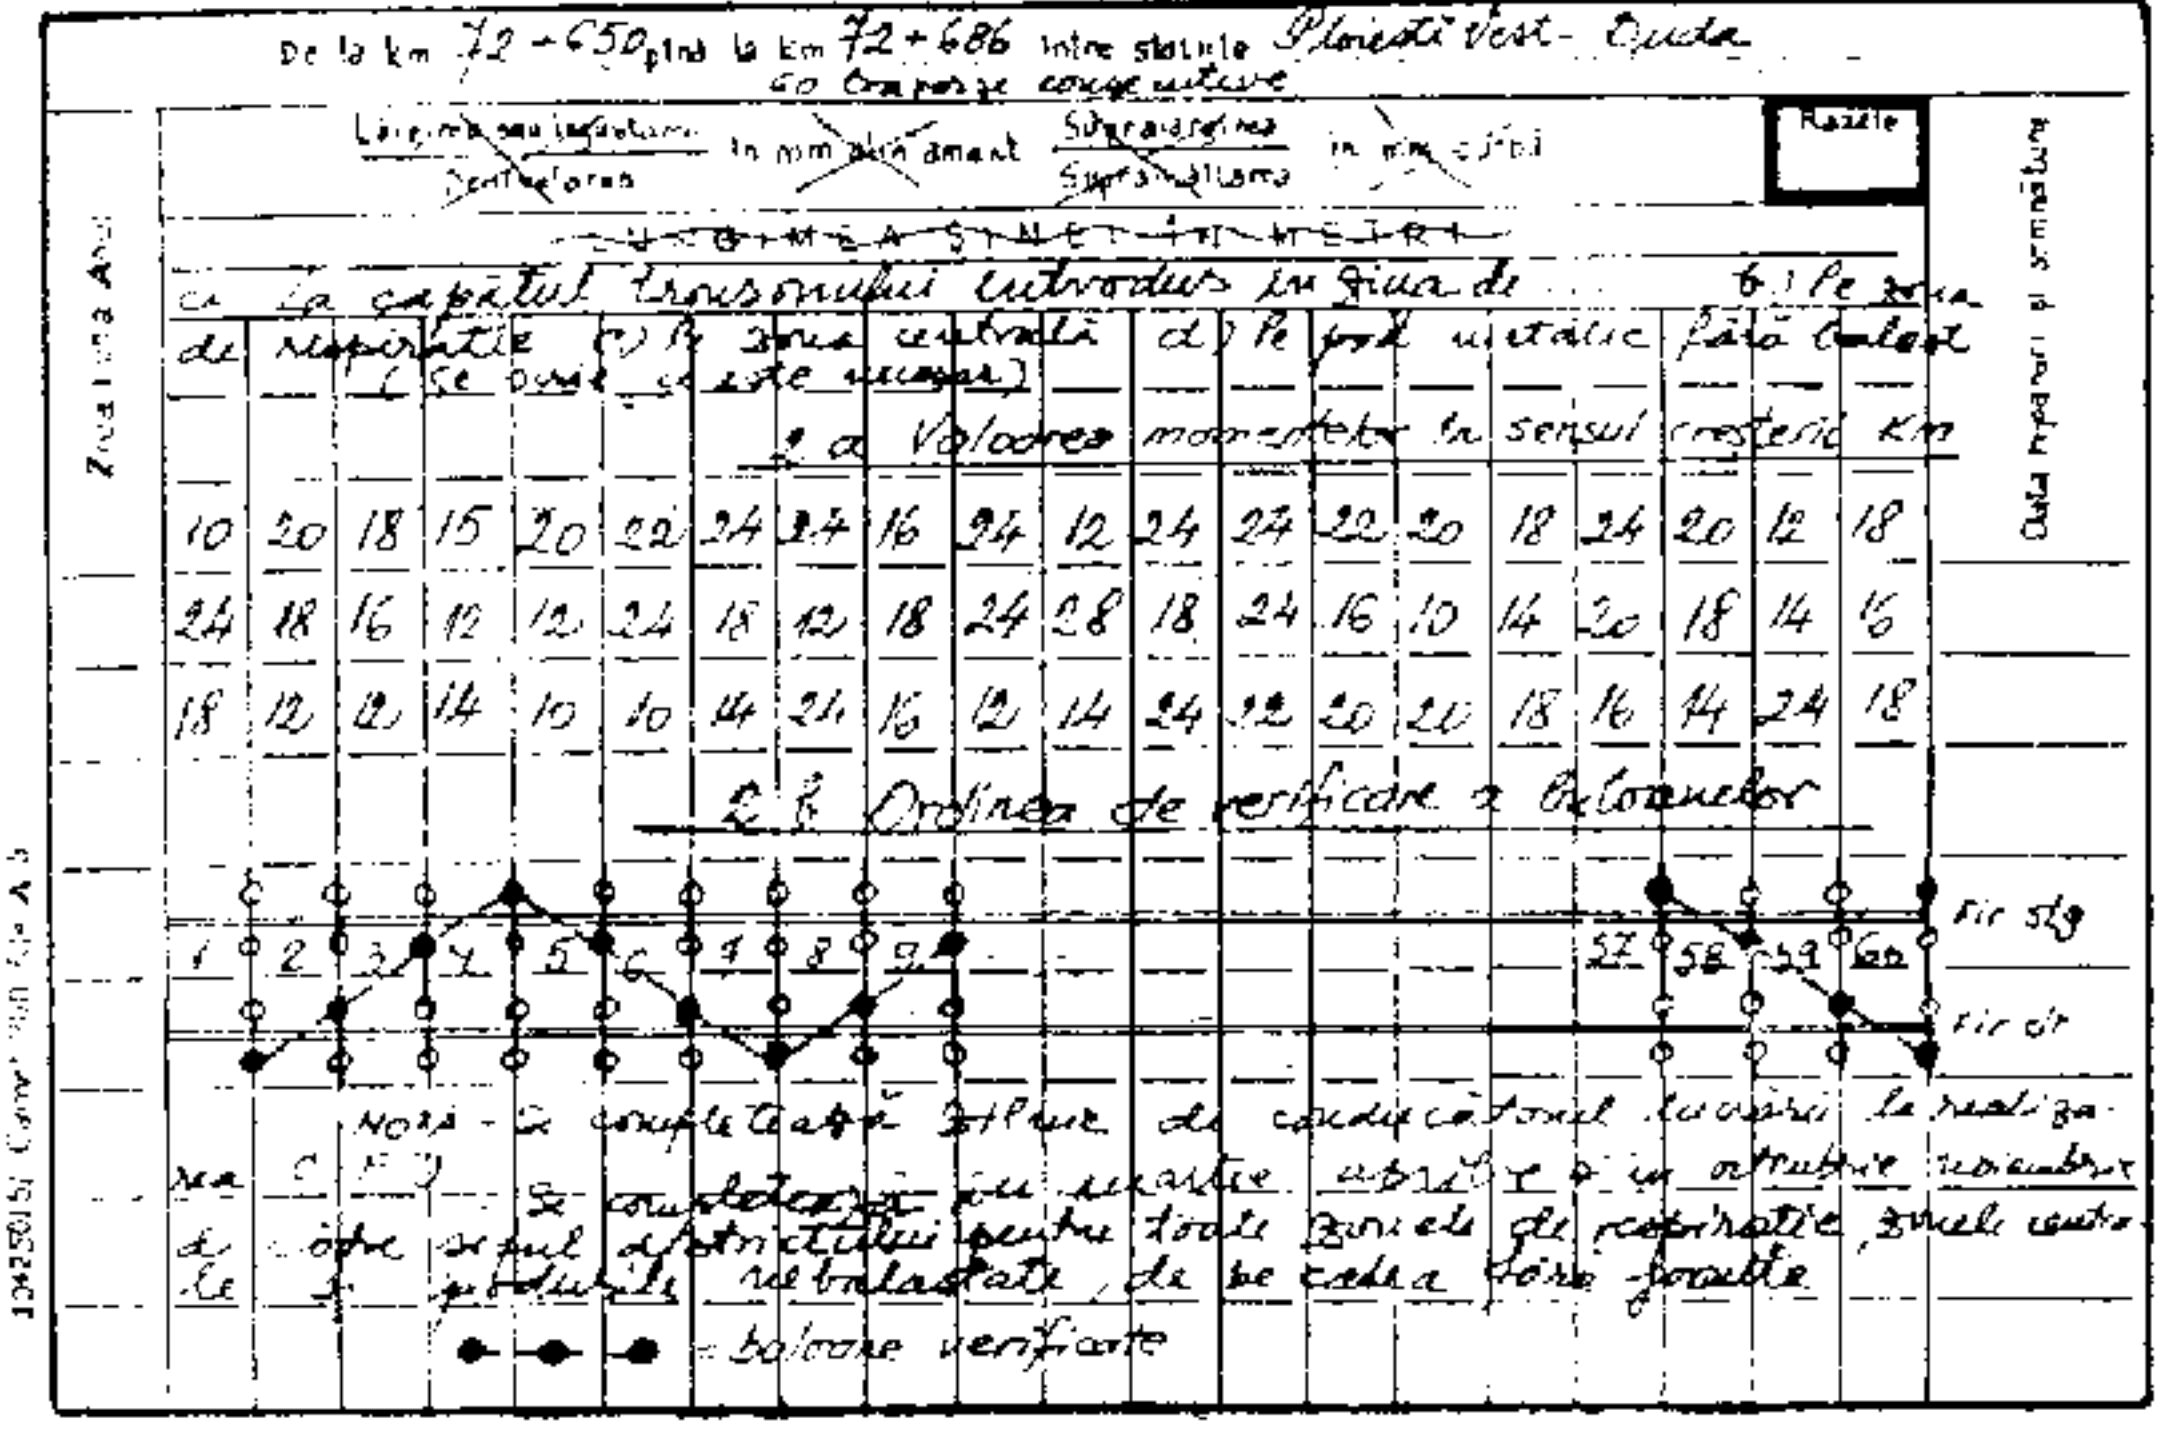 De la km 72+650 pînă la km 72+686 între stațiile Ploiesti Vest - Buda
60 traverse consecutive
Lărgirea sau îngustarea în mm aliniament Supralărgirea în mm curbă
Denivelarea Supraînălțarea
Razele
LUNGIMEA ȘINEI ÎN METRI
Ziua luna Anul
Data reparării și semnătura
a) La capătul tronsonului introdus în ziua de ... b) Pe zona
de respirație c) Pe zona centrală d) Pe pod metalic fără balast
(Se scrie ce este necesar)
2 a Valoarea momentelor în sensul creșterii km
10 20 18 15 20 22 24 24 16 24 12 24 24 22 20 18 24 20 12 18
24 18 16 12 12 24 18 12 18 24 28 18 24 16 10 14 20 18 14 16
18 12 12 14 10 10 14 24 16 12 14 24 22 20 20 18 16 14 24 18
2 b Ordinea de verificare a buloanelor
Fir stg
1 2 3 4 5 6 7 8 9 57 58 59 60
Fir dr
Notă - Se completează zilnic de conducătorul lucrării la realiza-
rea C F J
- Se completează în martie aprilie și în octombrie noiembrie
de către șeful districtului pentru toate zonele de respirație, zonele centra-
le și podurile nebalastate, de pe calea fără joante
= buloane verificate